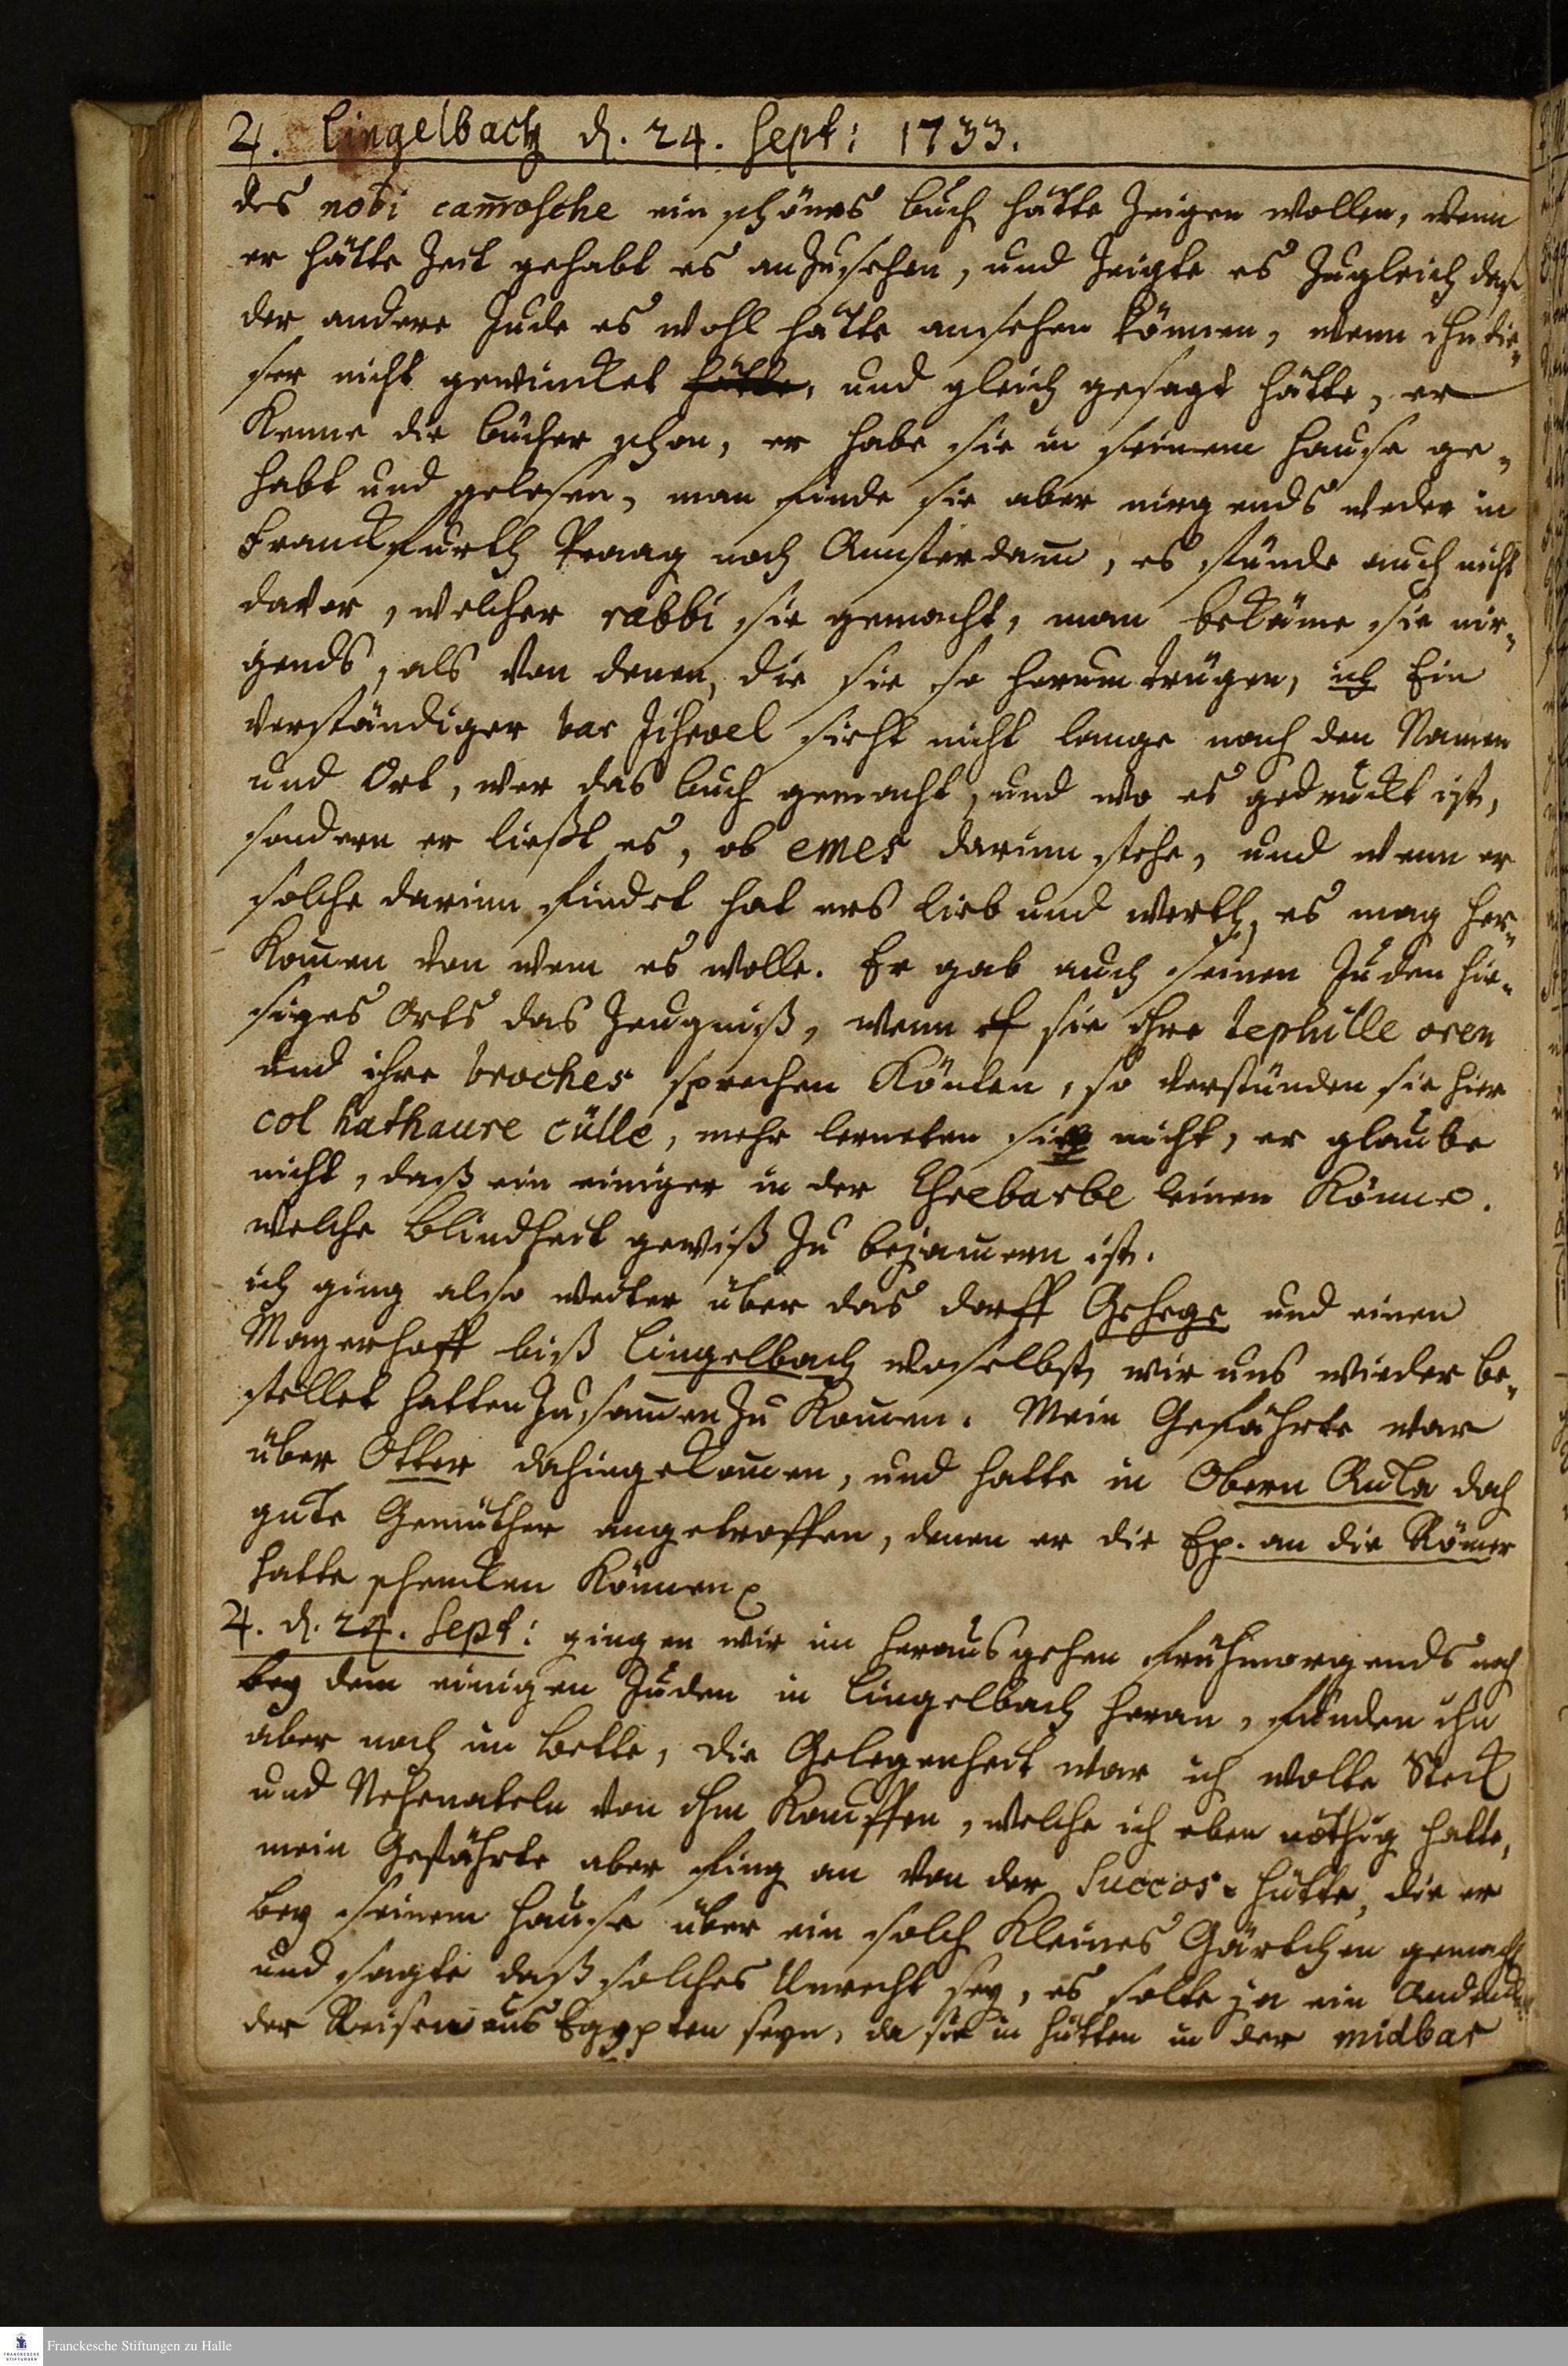 4. Lingelbach d. 24. Sept: 1733.
des nobi cam̄osche ein schönes buch hätte zeigen wollen, wenn
er hätte Zeit gehabt es anzusehen, und zeigte es zugleich daß
der andere Jude es wohl hätte ansehen können, wenn ihn die„
ser nicht gewincket hätte, und gleich gesagt hätte, er
Kenne die bücher schon, er habe sie in seinem Hause ge„
habt und gelesen, man finde sie aber nirgends weder in
Franckfurth Praag noch Amsterdam̄, es stünde auch nicht
davor, welcher rabbi sie gemacht, man bekäme sie nir„
gends, als von denen, die sie so herumtrügen, ich Ein
verständiger bar Jisroel sieht nicht lange nach den Namen
und Ort, wer das buch gemacht, und wo es gedruckt ist,
sondern er ließt es, ob emes darinn stehe, und wenn er
solche darinn findet hat ers lieb und werth, es mag her„
Kom̄en von wem es wolle. Er gab auch seinen Juden hie„
siges Orts das Zeugniß, wenn sie ihre tephille oren
und ihre broches sprechen Könten, so verstünden sie hier
col hathaure cülle, mehr lerneten sie nicht, er glaube
nicht, daß ein einiger in der Esrebarbe leinen Könne.
welche Blindheit gewiß zu bejam̄ern ist.
ich ging also weiter über das dorff Gehege und einen
Mayerhoff biß Lingelbach woselbst wir uns wieder be„
stellet hatten zusam̄en zu Kom̄en. Mein Gefährte war
über Otter dahingekom̄en, und hatte in Obern Aula doch
gute Gemüther angetroffen, denen er die Ep. an die Römer
hatte schencken Können
4. d. 24. Sept: gingen wir im herausgehen frühmorgends noch
bey dem einigen Juden in Lingelbach heran, funden ihn
aber noch im Bette, die Gelegenheit war ich wolte Steck
und Nehenateln von ihm Kauffen, welche ich eben nöthig hatte,
mein Gefährte aber fing an von der Succos-hütte, die er
bey seinem Hause über ein solch Kleines Gärtchen gemacht
und sagte daß solches Unrecht sey, es solte ja ein Andencken
der Reisen aus Egypten seyn, da sie in hütten in der midbar
Franckesche Stiftungen zu Halle
FRANCKESCHE STIFTUNGEN